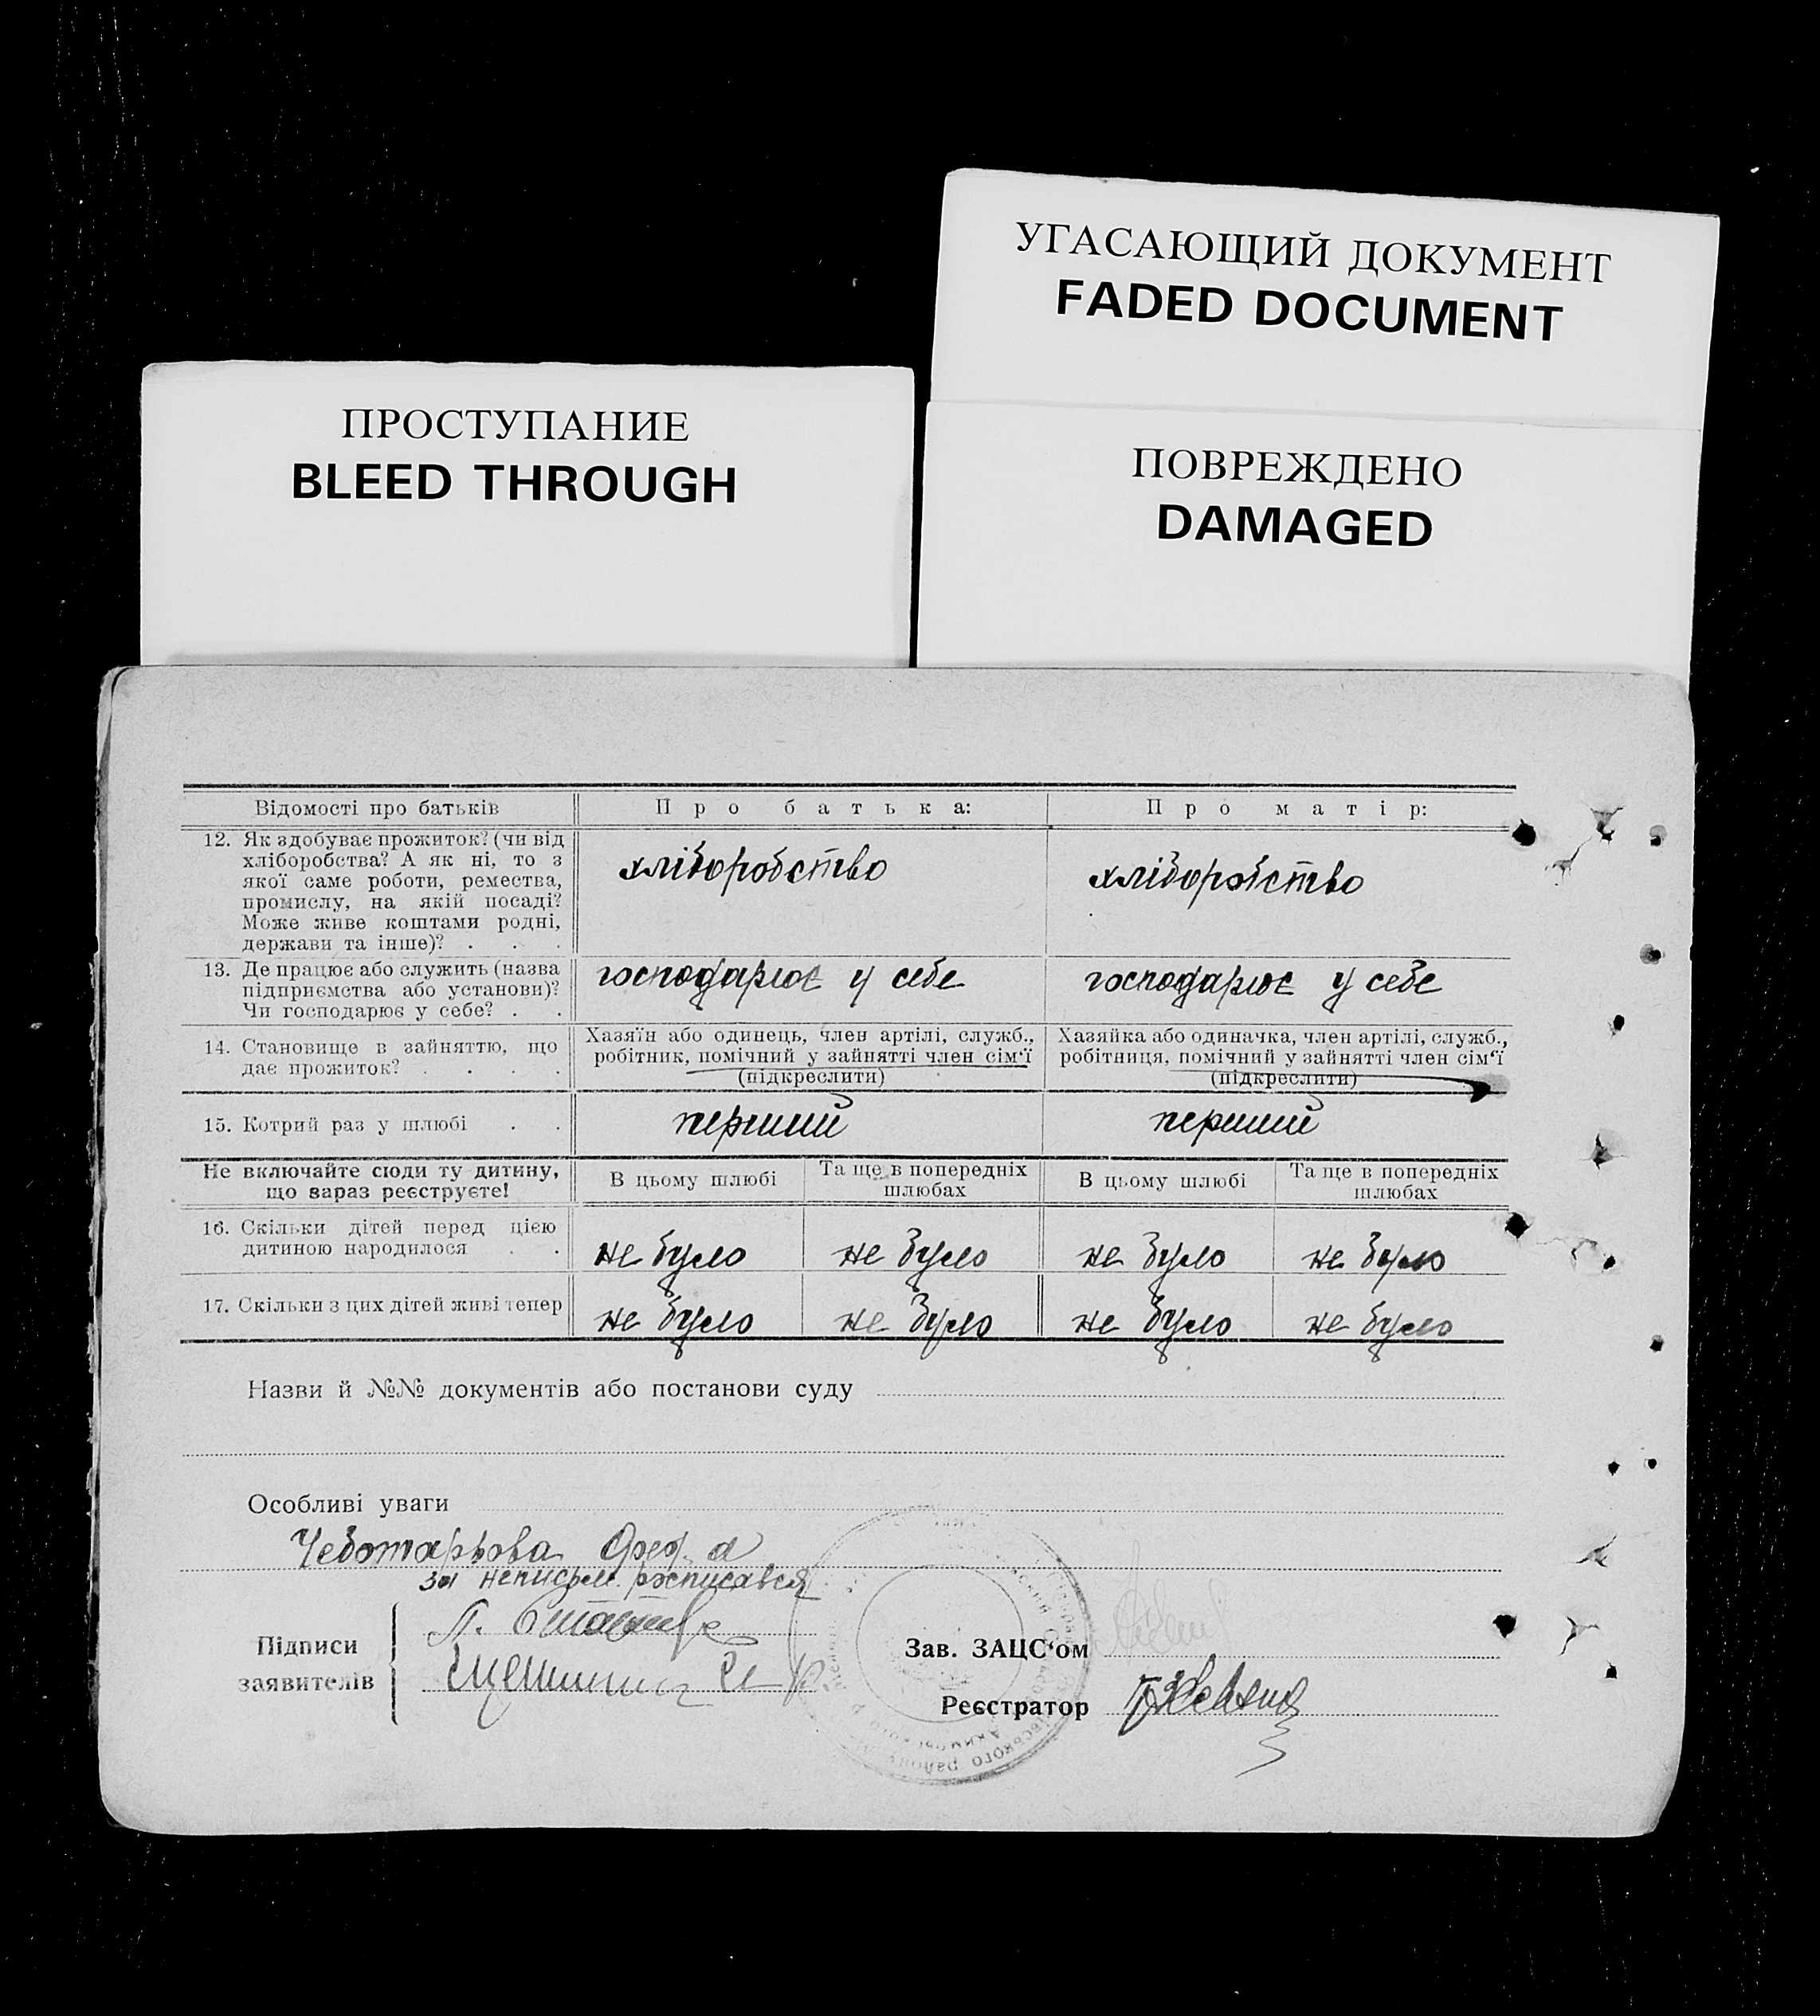 УГАСАЮЩИЙ ДОКУМЕНТ
FADED DOCUMENT
ПРОСТУПАНИЕ
BLEED THROUGH
ПОВРЕЖДЕНО
DAMAGED
Відомості про батьків
Про батька:
Про матір:
12. Як здобуває прожиток? (чи від
хліборобства? А як ні, то з
якої саме роботи, ремества,
промислу, на якій посаді?
Може живе коштами родні,
держави та інше)? . . .
хліборобство
хліборобство
13. Де працює або служить (назва
підприємства або установи)?
Чи господарює у себе? . .
господарює у себе
господарює у себе
14. Становище в зайняттю, що
дає прожиток? . . . .
Хазяїн або одинець, член артілі, служб.,
робітник, помічний у зайнятті член сім'ї
(підкреслити)
Хазяйка або одиначка, член артілі, служб.,
робітниця, помічний у зайнятті член сім'ї
(підкреслити)
15. Котрий раз у шлюбі . .
перший
перший
Не включайте сюди ту дитину,
що зараз реєструєте!
В цьому шлюбі
Та ще в попередніх
шлюбах
В цьому шлюбі
Та ще в попередніх
шлюбах
16. Скільки дітей перед цією
дитиною народилося . .
не було
не було
не було
не було
17. Скільки з цих дітей живі тепер
не було
не було
не було
не було
Назви й №№ документів або постанови суду
Особливі уваги
Чеботарьова
за неписьм. розписався
Підписи
заявителів
Зав. ЗАЦС'ом
Реєстратор